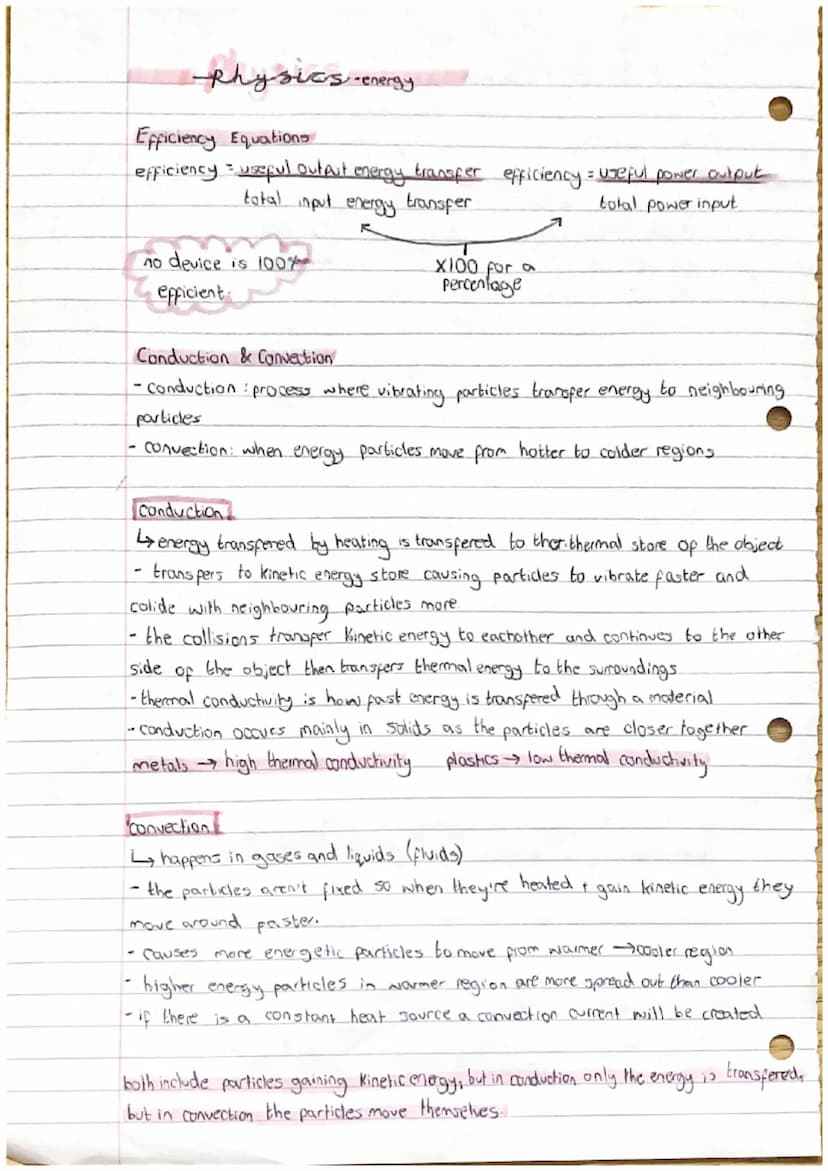 Physics - energy
Efficiency Equations
efficiency = useful output energy transfer efficiency = useful power output
total input energy transfer total power input
no device is 100% x100 for a
efficient. percentage
Conduction & Convection
- conduction : process where vibrating particles transfer energy to neighbouring
particles
- convection: when energy particles move from hotter to colder regions
conduction
↳ energy transfered by heating is transfered to ther.thermal store of the object
- transfers to kinetic energy store causing particles to vibrate faster and
colide with neighbouring particles more.
- the collisions transfer kinetic energy to eachother and continues to the other
side of the object then transfers thermal energy to the surroundings
- thermal conductivity is how fast energy is transfered through a material
- conduction occurs mainly in solids as the particles are closer together
metals → high thermal conductivity plastics → low thermal conductivity
convection
↳ happens in gases and liquids (fluids)
- the particles aren't fixed so when they're heated + gain kinetic energy they
move around faster.
- causes more energetic particles to move from warmer → cooler region
- higher energy particles in warmer region are more spread out than cooler
- if there is a constant heat source a convection current will be created
both include particles gaining kinetic energy, but in conduction only the energy is transfered,
but in convection the particles move themselves.